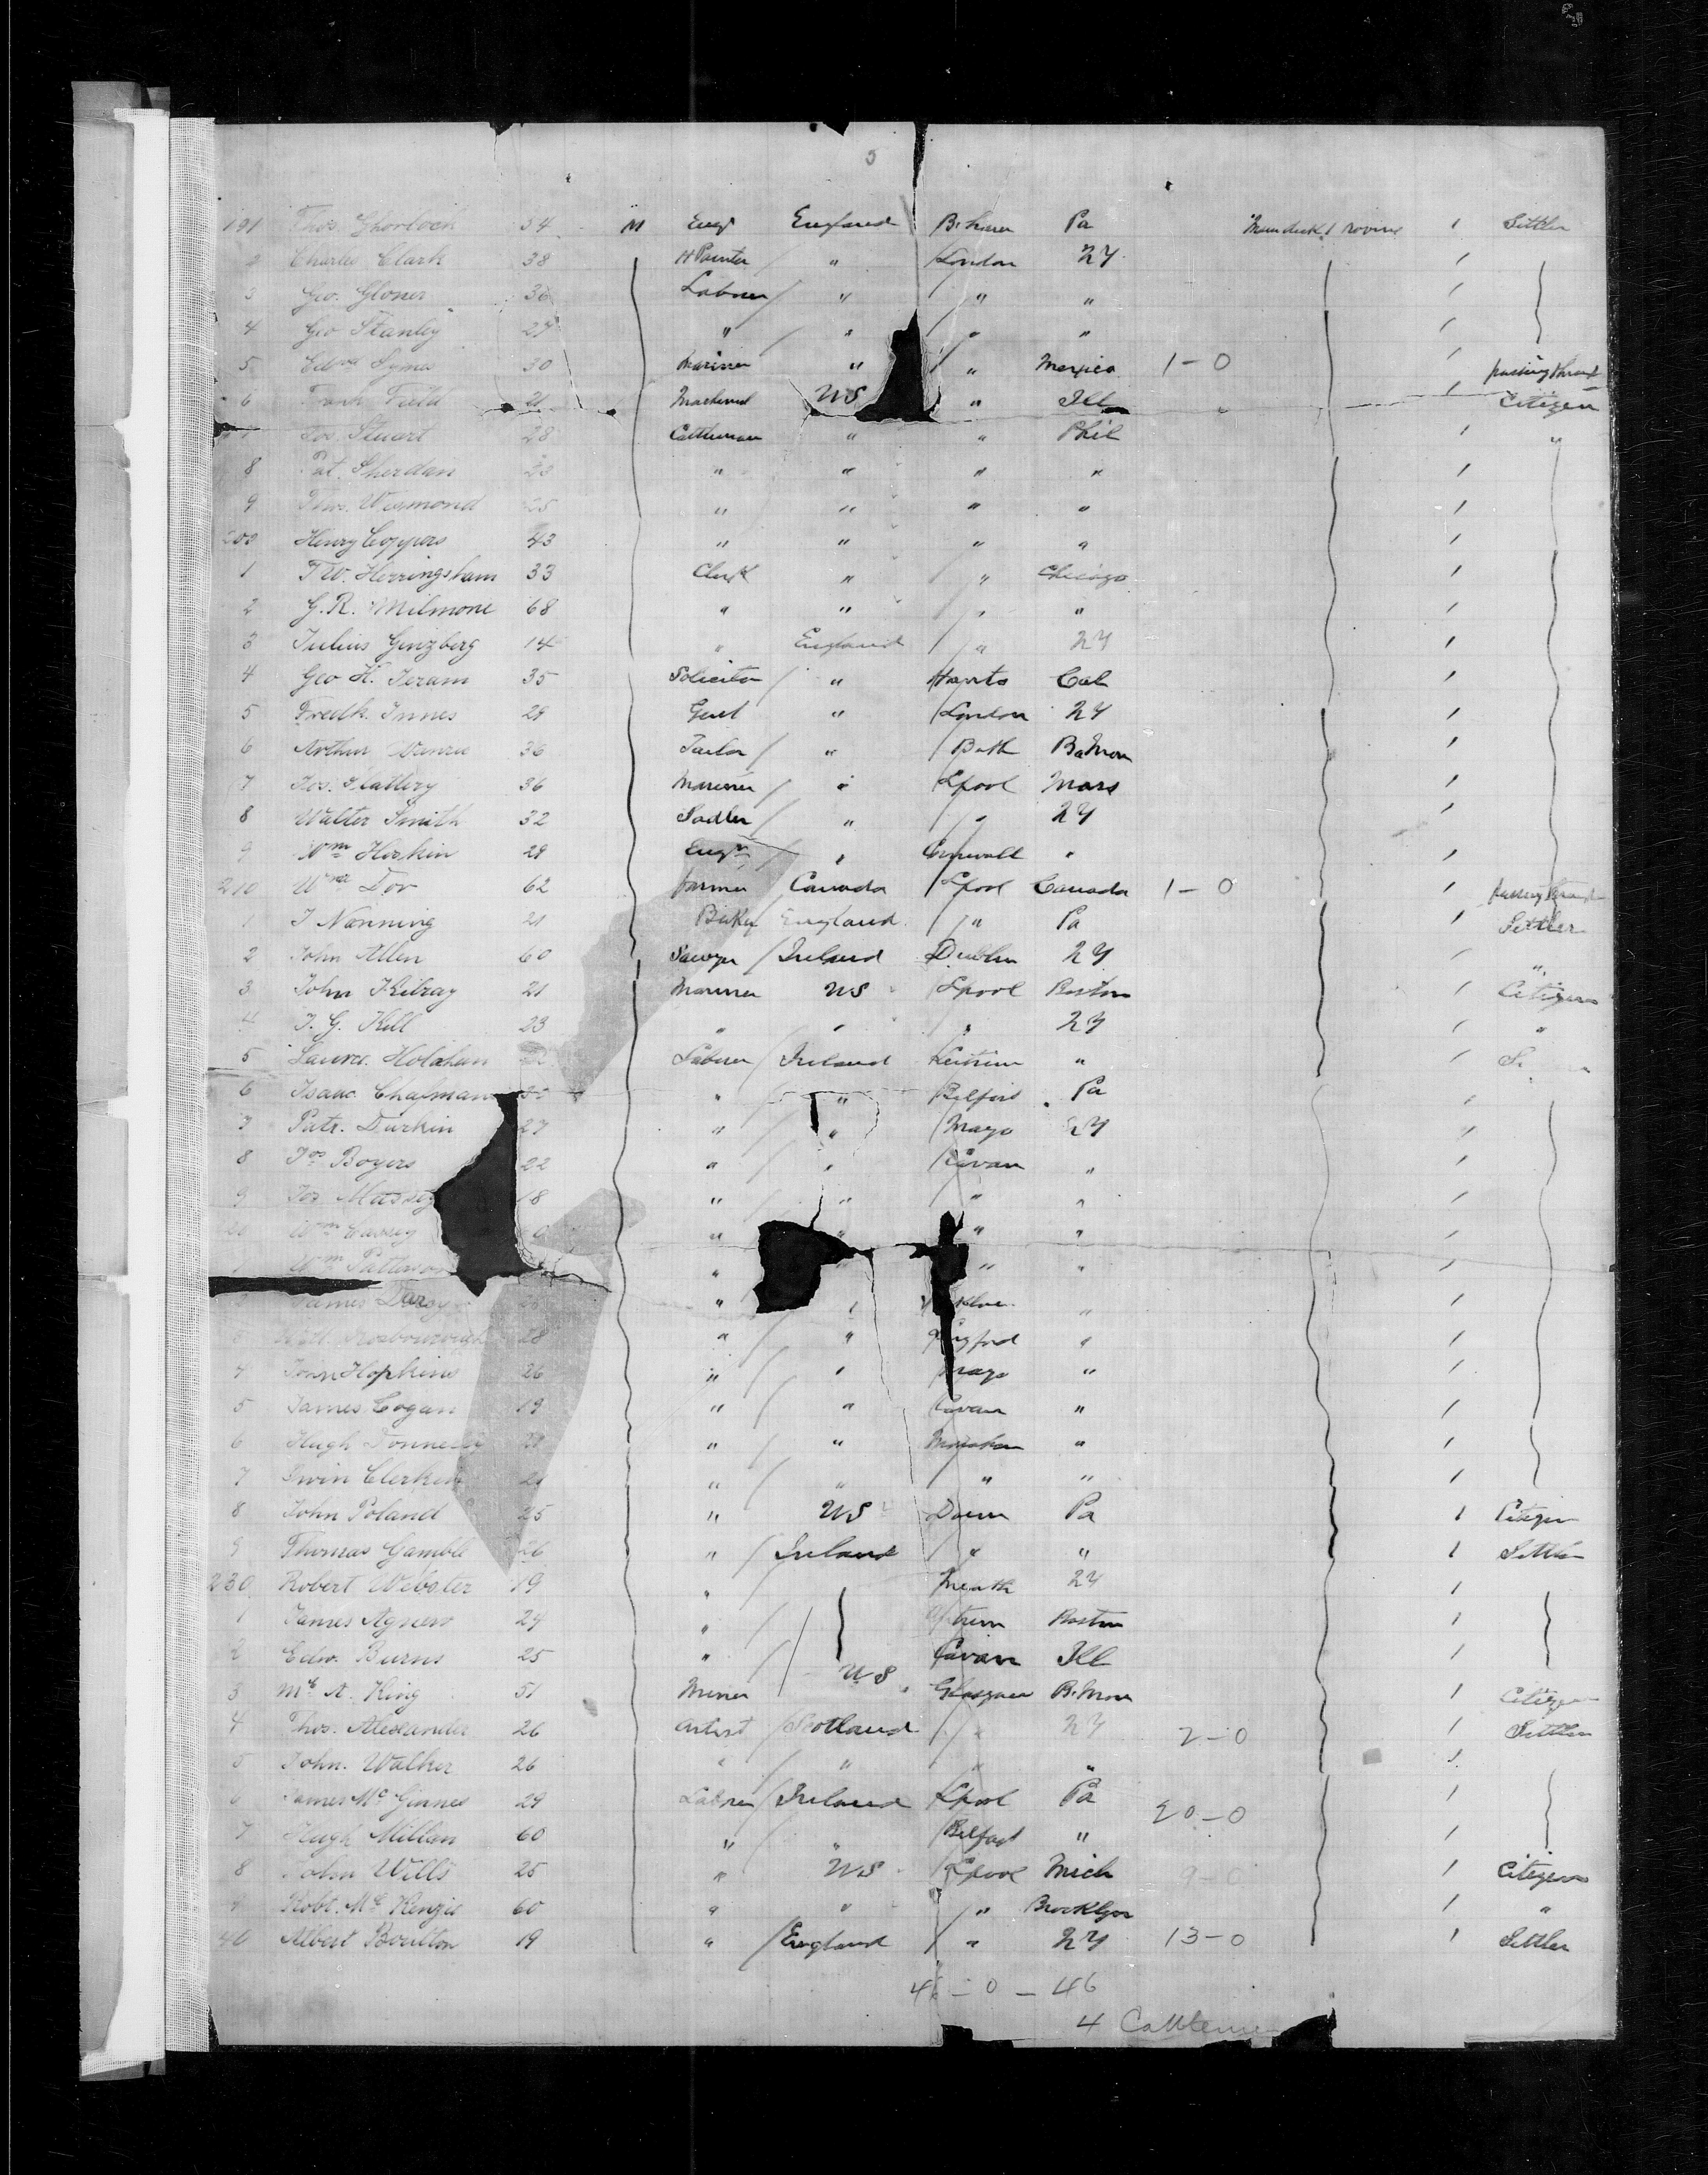 5
191 Thos. 34 M Engr England Pa 1 Settler
2 Charles Clark 38 H Painter / " / London NY
3 Geo. Glover 36 Labrer / " / " "
4 Geo Stanley 29 " / " / " "
5 Edwd Symes 30 Mariner " / " Mexico 1-0 passing thro
6 Frank Field 21 Machinist US " Ill Citizen
7 Jos. Stuart 28 Cattleman " " Phil "
8 Pat. Sherdan 23 " " " "
9 Thos. Wesmond 25 " " " "
200 Henry Coppers 43 " " " "
1 T W. Herringsham 33 Clerk " / " Chicago
2 G. R. Milmore 68 " " / " "
3 Julius Ginzberg 14 " England / " NY
4 Geo H. Jeram 35 Solicitor / " Cal
5 Fredk. Innes 29 Gent " / London NY
6 Arthur 36 Tailor / " / Bath
7 Jos. Slattery 36 Mariner / " Lpool Mass
8 Walter Smith 32 Sadler / " / " NY
9 Wm Hoskin 29 Engr / " Cornwall "
210 Wm Dov 62 farmer / Canada / Lpool Canada 1-0
1 J Nanning 21 England / " Pa Settler
2 John Allen 60 Sawyer / Ireland Dublin NY "
3 John Kilray 21 Mariner US Lpool Boston Citizen
4 J. G. Hill 23 " " " NY "
5 Laurce. Holahan Labrer / Ireland Leitrim "
6 Isaac Chapman " " / Belfast Pa
7 Patr. Durkin 27 " / " / Mayo NY
8 Jos Boyers 22 " / " / Cavan "
9 Jos Massey 18 " / " / " "
20 Wm " " "
1 Wm Patterson " " "
James Darcy " / " "
28 " / " "
4 John Hopkins 26 " / " Mayo "
5 James Cogan 19 " / " Cavan "
6 Hugh Donnelly " / " Monahan "
7 Irwin Clerkin " / " / " "
8 John Poland 25 " US Down Pa Citizen
9 Thomas Gamble 26 " / Ireland / " " Settler
230 Robert Webster 19 " / Meath NY
1 James Agnew 24 " / Antrim Boston
2 Edw. Burns 25 " / Cavan Ill
3 Mc A. King 51 Miner US Glasgow Citizen
4 Thos. Alexander 26 Artist / Scotland / " NY 2-0 Settler
5 John. Walker 26 " / " / " "
6 James McGinnes 29 Labrer / Ireland Lpool Pa 20-0
7 Hugh Millan 60 " " / Belfast "
8 John Wills 25 " US / Lpool Mich 9-0 Citizen
9 Robt. McKenzie 60 " " / " Brooklyn "
40 Albert Boulton 19 " / England / " NY 13-0 Settler
46 - 0 - 46
4 Cattlemen